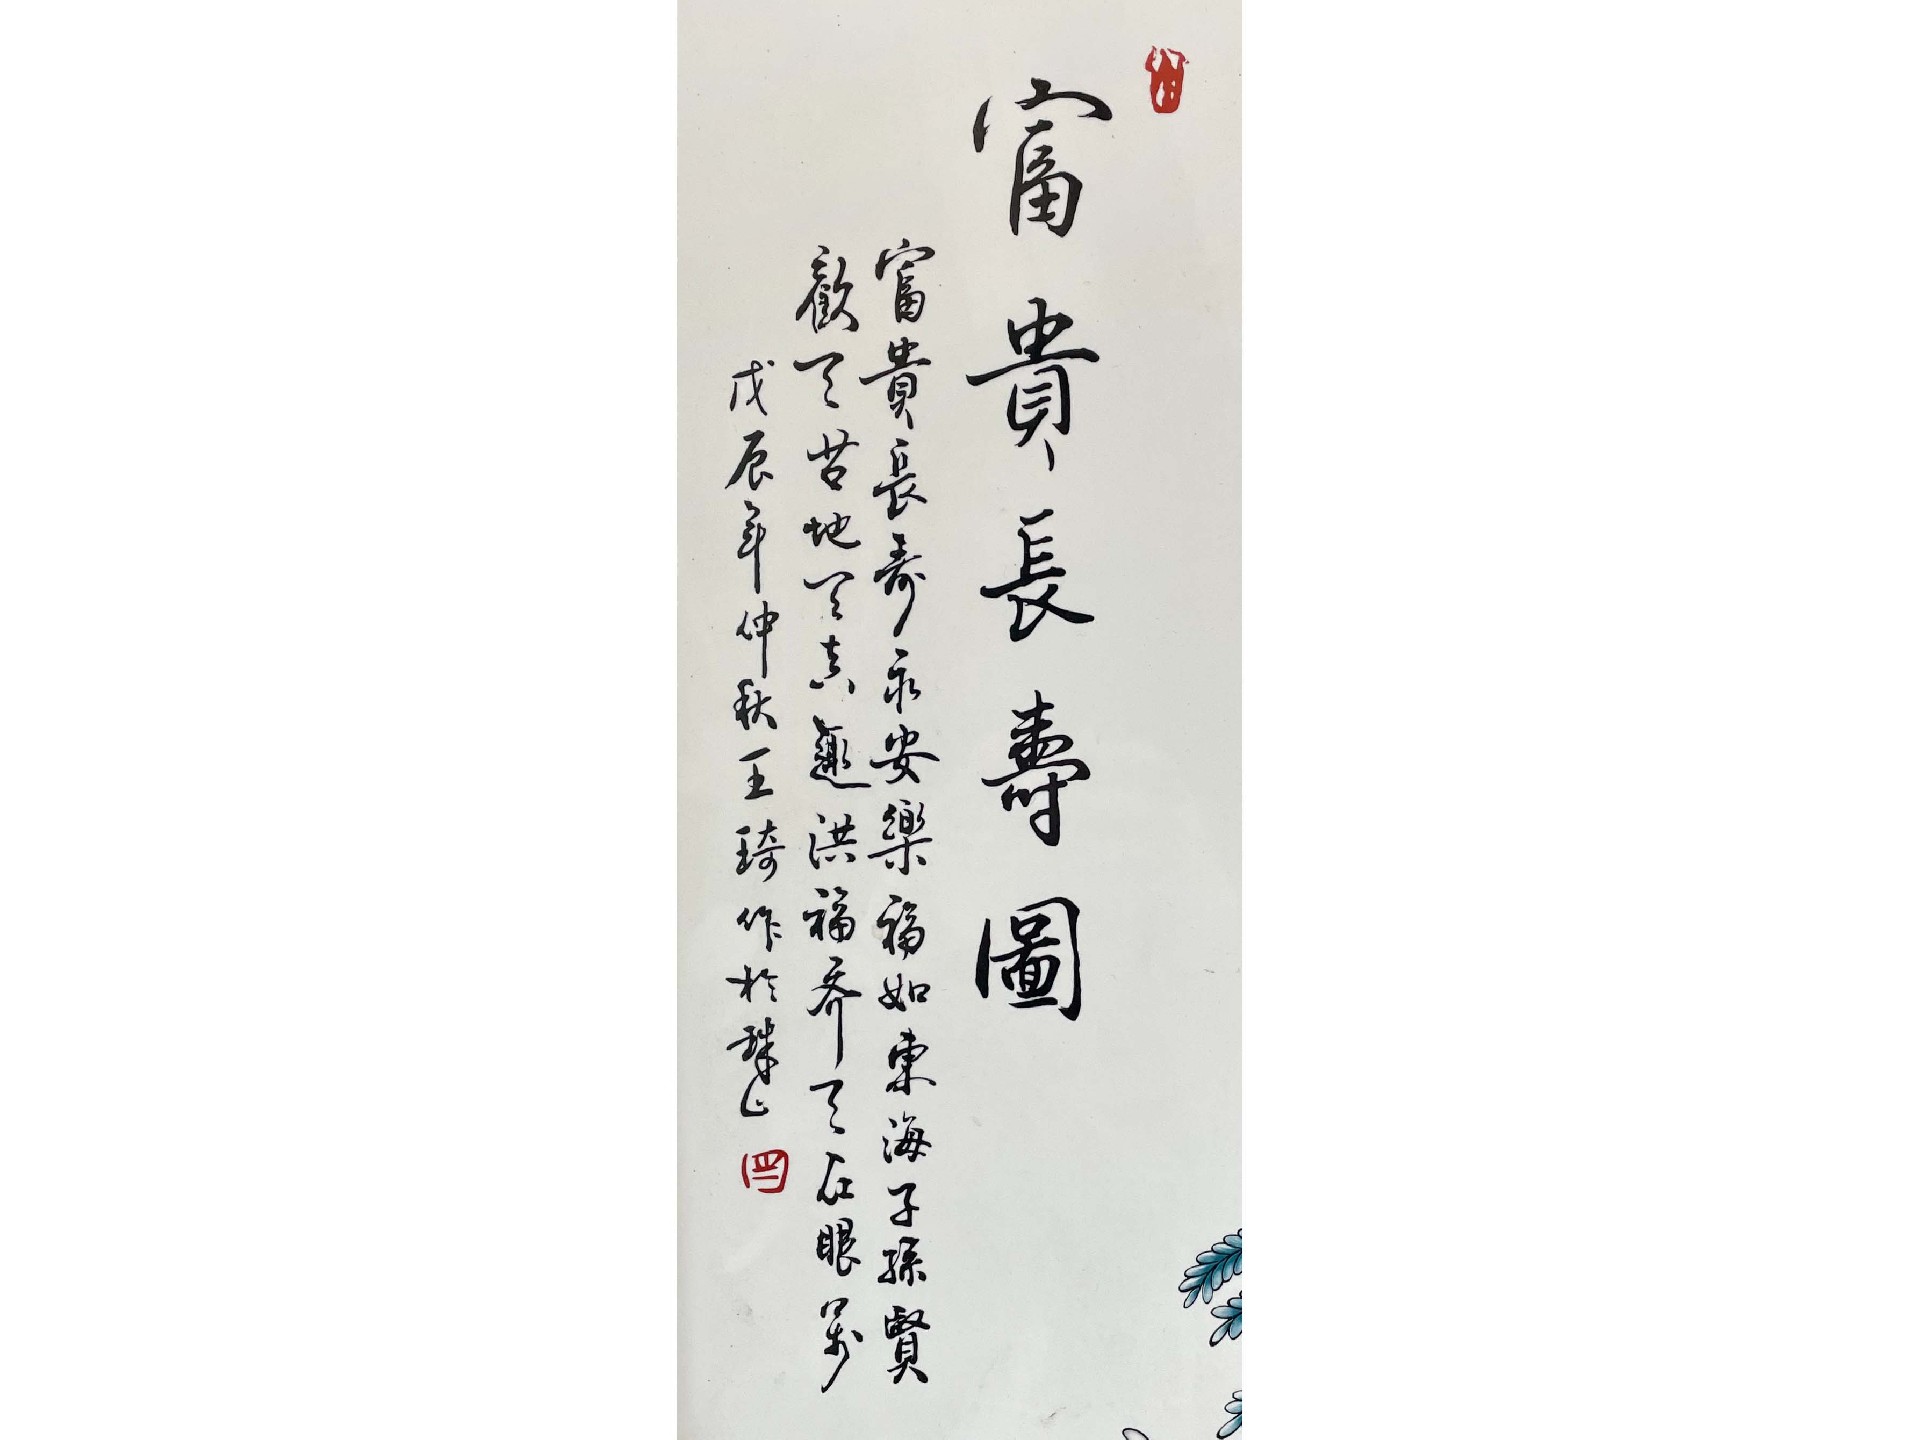 富貴長壽圖
富貴長壽永安樂福如東海子孫賢
歡天喜地天真趣洪福齊天在眼前
戊辰年仲秋王琦作於珠山